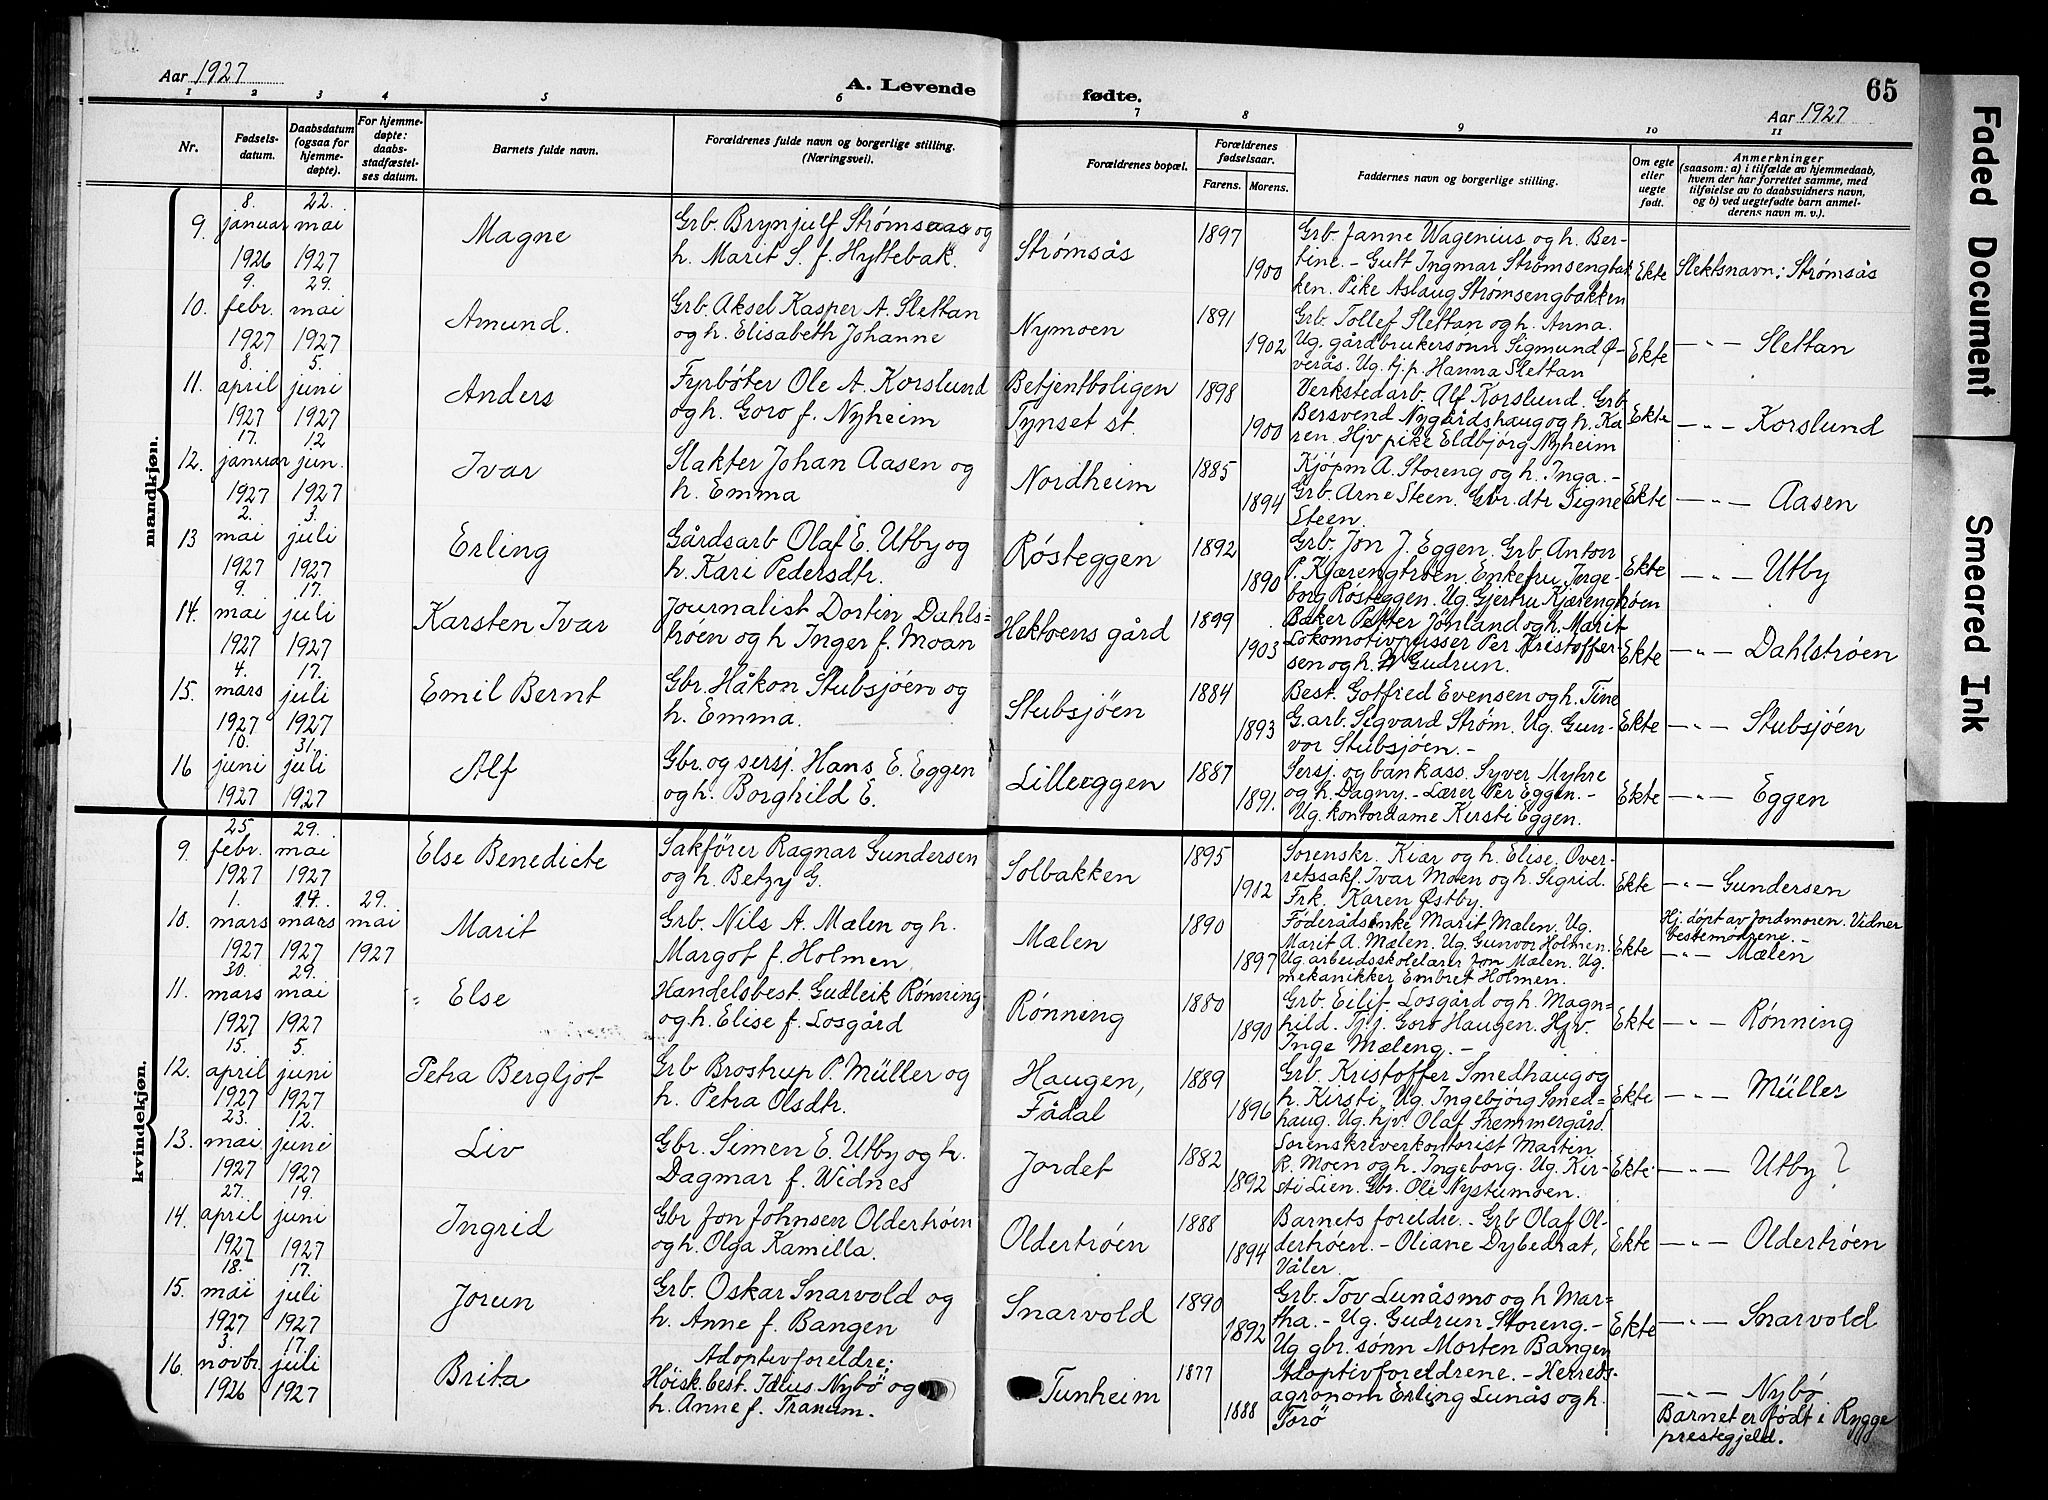 Aar 1927
A. Levende
fødte.
65
Aar 1927
1 2 3 4 5 6 7 8 9 10 11
Nr.
Fødsels-
datum.
Daabsdatum
(ogsaa for
hjemme-
døpte).
For hjemme-
døpte:
daabs-
stadfæstel-
ses datum.
Barnets fulde navn.
Forældrenes fulde navn og borgerlige stilling.
(Næringsvei).
Forældrenes bopæl.
Forældrenes
fødselsaar.
Farens. Morens.
Faddernes navn og borgerlige stilling.
Om egte
eller
uegte
født.
Anmerkninger
(saasom: a) i tilfælde av hjemmedaab,
hvem der har forrettet samme, med
tilføielse av to daabsvidners navn,
og b) ved uegtefødte barn anmel-
derens navn m. v.).
mandkjøn.
9.
8.
januar
1926
22.
mai
1927
Magne
Grb. Brynjulf Strømsaas og
h. Marit S. f. Hyttebak.
Strømsås
1897
1900
Grb. Janne Wagenius og h. Ber-
tine. - Gutt Ingmar Strømsengbak-
ken. Pike Aslaug Strømsengbakken
Ekte
Slektsnavn: Strømsås
10.
9.
febr.
1927
29.
mai
1927
Amund.
Grb. Aksel Kasper A. Slettan
og h. Elisabeth Johanne
Nymoen
1891
1902
Grb. Tollef Slettan og h. Anna.
Ug. gårdbrukersønn Sigmund Ø-
verås. Ug. tj. p. Hanna Slettan
Ekte
— " — Slettan
11.
8.
april
1927
5.
juni
1927
Anders
Fyrbøter Ole A. Korslund
og h. Goro f. Nyheim
Betjentboligen
Tynset st.
1898
1900
Verkstedarb. Alf Korslund. Grb.
Bersvend Nygårdshaug og h. Ka-
ren. Hjv pike Eldbjørg Nyheim
Ekte
— " — Korslund
12.
17.
januar
1927
12
jun.
1927
Ivar
Slakter Johan Aasen og
h. Emma
Nordheim
1885
1894
Kjøpm A. Storeng og h. Inga. -
Grb. Arne Steen. Gbr. dtr Signe
Steen.
Ekte
— " — Aasen
13
2.
mai
1927
3.
juli
1927
Erling
Gårdsarb Olaf E. Utby og
h. Kari Pedersdtr.
Røsteggen
1892
1890
Grb. Jon J. Eggen. Grb Anton
P. Kjærengtrøen. Enkefru Inge-
borg Røsteggen. Ug. Gjertru Kjærengtrøen
Ekte
— " — Utby
14.
9.
mai
1927
17.
juli
1927
Karsten Ivar
Journalist Dortin Dahls=
trøen og h Inger f. Moan
Hektoens gård
1899
1903
Baker Petter Jonland og h. Marit
Lokomotivpusser Per Kristoffer-
sen og h. Gudrun.
Ekte
— " — Dahlstrøen
15.
4.
mars
1927
17.
juli
1927
Emil Bernt
Gbr. Håkon Stubsjøen og
h. Emma.
Stubsjöen
1884
1893
Best. Gotfred Evensen og h. Tine
G.arb. Sigvard Strøm. Ug. Gun-
vor Stubsjøen. -
Ekte
— " — Stubsjøen
16
10.
juni
1927
31.
juli
1927
Alf
Gbr. og sersj. Hans E. Eggen
og h. Borghild E.
Lilleeggen
1887
1891.
Sersj. og bankass. Syver Myhre
og h. Dagny. - Lærer Per Eggen. -
Ug. kontordame Kirsti Eggen.
Ekte
— " — Eggen
kvindekjøn.
9.
25.
febr.
1927
29.
mai
1927
Else Benedicte
Sakfører Ragnar Gundersen
og h. Betzy G.
Solbakken
1895
1902
Sorenskr. Kiær og h. Elise. Over-
rettssakf. Ivar Moen og h. Sigrid.
Frk. Karen Østby.
Ekte
— " — Gundersen
10.
1.
mars
1927
mars
1927
29.
mai
1927
Marit
Grb. Nils A. Mælen og h.
Margot f. Holmen
Mælen
1890
1897
Føderådsenke Marit Mælen. Ug.
Marit A. Mælen. Ug. Gunvor Holmen.
Ug. arbeidsskolelærer Jon Mælen. Ug.
mekanikker Embret Holmen.
Ekte
Hj. døpt av jordmoren. Vidner
bestemødrene. -
— " — Mælen
11.
30.
mars
1927
29.
mai
1927
Else
Handelsbest. Gudleik Rønning
og h. Elise f. Losgård
Rønning
1880
1890
Grb. Eilif Losgård og h. Magn=
hild. Tj.j. Goro Haugen. Hjv.
Inge Mæleng. -
Ekte
— " — Rønning
12.
15.
april
1927
5.
juni
1927
Petra Bergljot
Grb Brostrup P. Müller og
h. Petra Olsdtr.
Haugen,
Fådal
1889
1896
Grb. Kristoffer Smedhaug og
h. Kirsti, Ug. Ingebjørg Smed=
haug. Ug. hjv. Olaf Fremmergård.
Ekte
— " — Müller
13.
23.
mai
1927
12.
juni
1927
Liv
Gbr. Simen E. Utby og h.
Dagmar f. Widnes
Jordet
1882
1892
Sorenskriverkontorist Martin
R. Moen og h. Ingeborg. Ug. Kir-
sti Lien. Gbr. Ole Nystumoen.
Ekte
— " — Utby?
14.
27.
april
1927
19.
juni
1927
Ingrid
Gbr Jon Johnsen Oldertrøen
og h. Olga Kamilla.
Oldertrøen
1888
1894
Barnets foreldre. - Grb Olaf Ol-
dertrøen. - Oliane Dybedrat,
Våler.
Ekte
— " — Oldertrøen
15.
18.
mai
1927
17.
juli
1927
Jorun
Grb. Oskar Snarvold og
h. Anne f. Bangen
Snarvold
1890
1892
Grb. Tov Lunåsmo og h Mar=
tha. - Ug. Gudrun Storeng. -
Ug gbr. sønn Morten Bangen
Ekte
— " — Snarvold
16.
3.
novbr.
1926
17.
juli
1927
Brita
Adoptivforeldre:
Høisk. best. Idtus Nybö og
h. Anne f. Tranum.
Tunheim
1877
1888
Adoptivforeldrene. - Herreds-
agronom Erling Lunås og h.
Torö
— " — Nybø
Barnet er født i Rygge
prestegjeld.
Faded Document
Smeared Ink